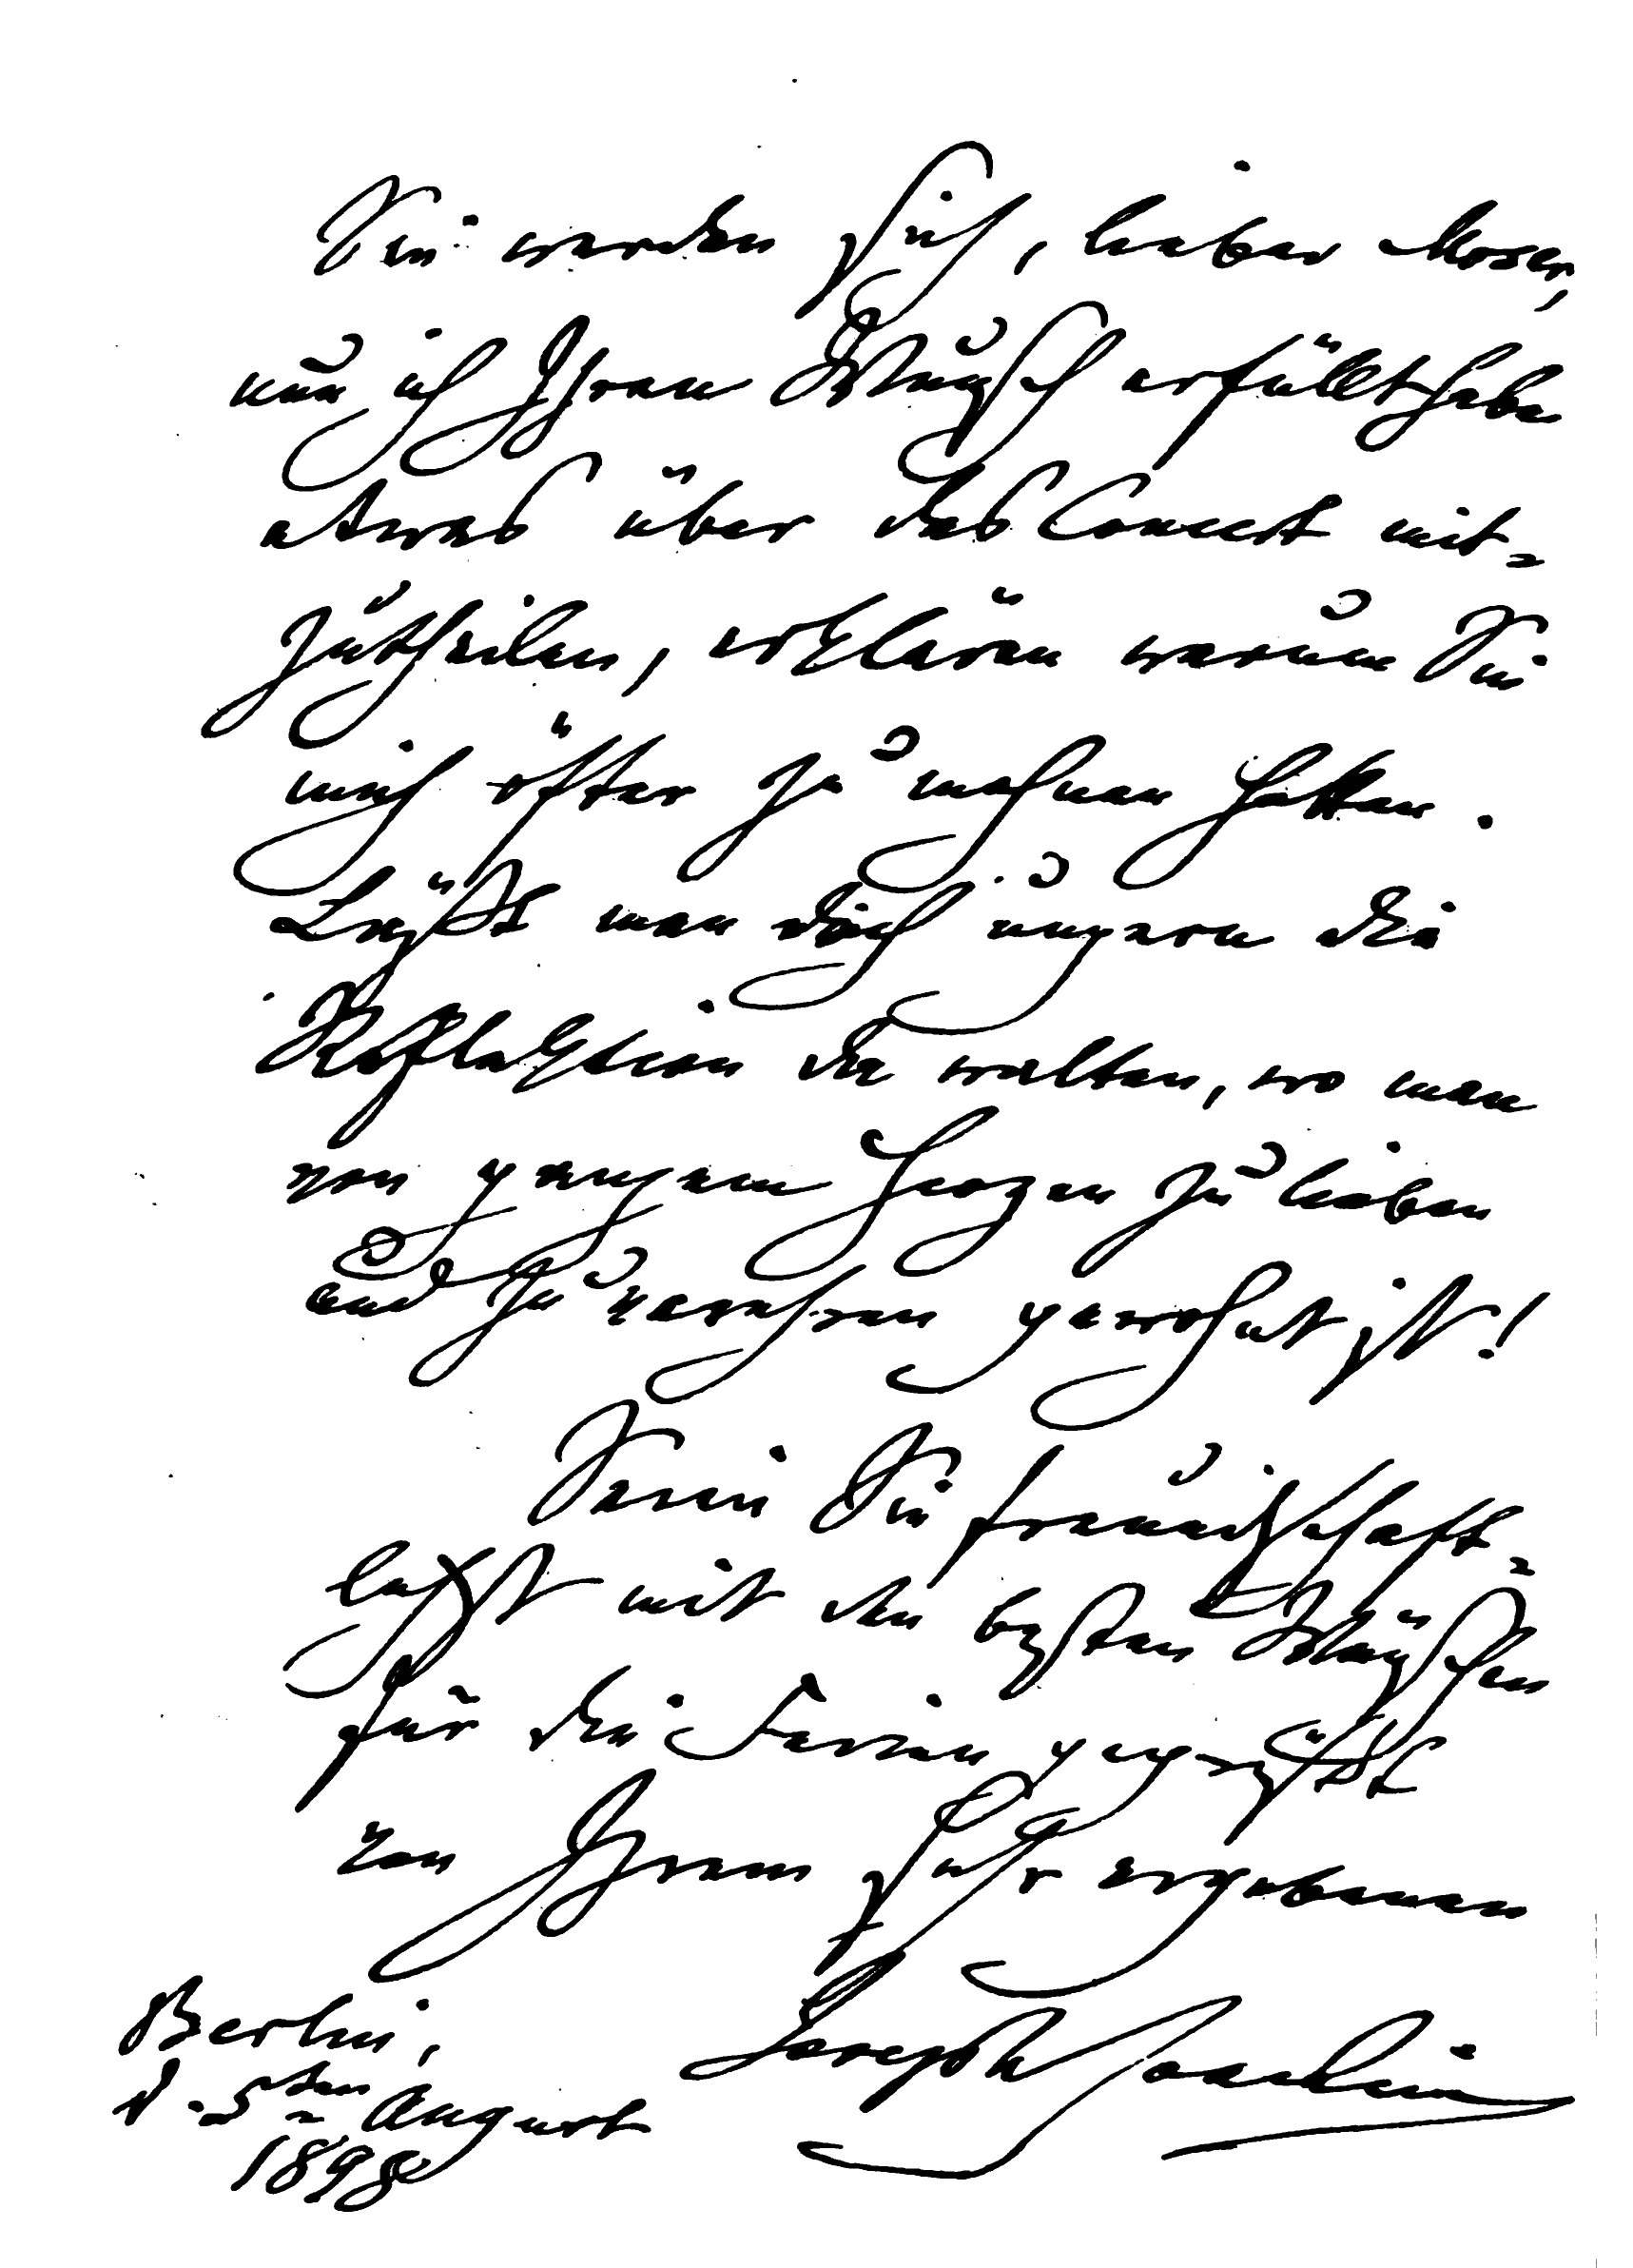 Sie werden sich, lieber Moser,
nun ich Ihren Wunsch erfüllt habe
etwas über das Concert mit=
zutheilen, erklären warum Sie
mich öfter zu mahnen hatten.
Läßt man doch ungern die
Reflektion da walten, wo man
von ganzem Herzen zu lieben
und zu verehren gewohnt ist!
Seien Sie freundschaft=
lichst mit den besten Wünschen
für die Ferien gegrüßt
von Ihrem sehr ergebenen
Joseph Joachim
Berlin,
d. 5ten August
1898